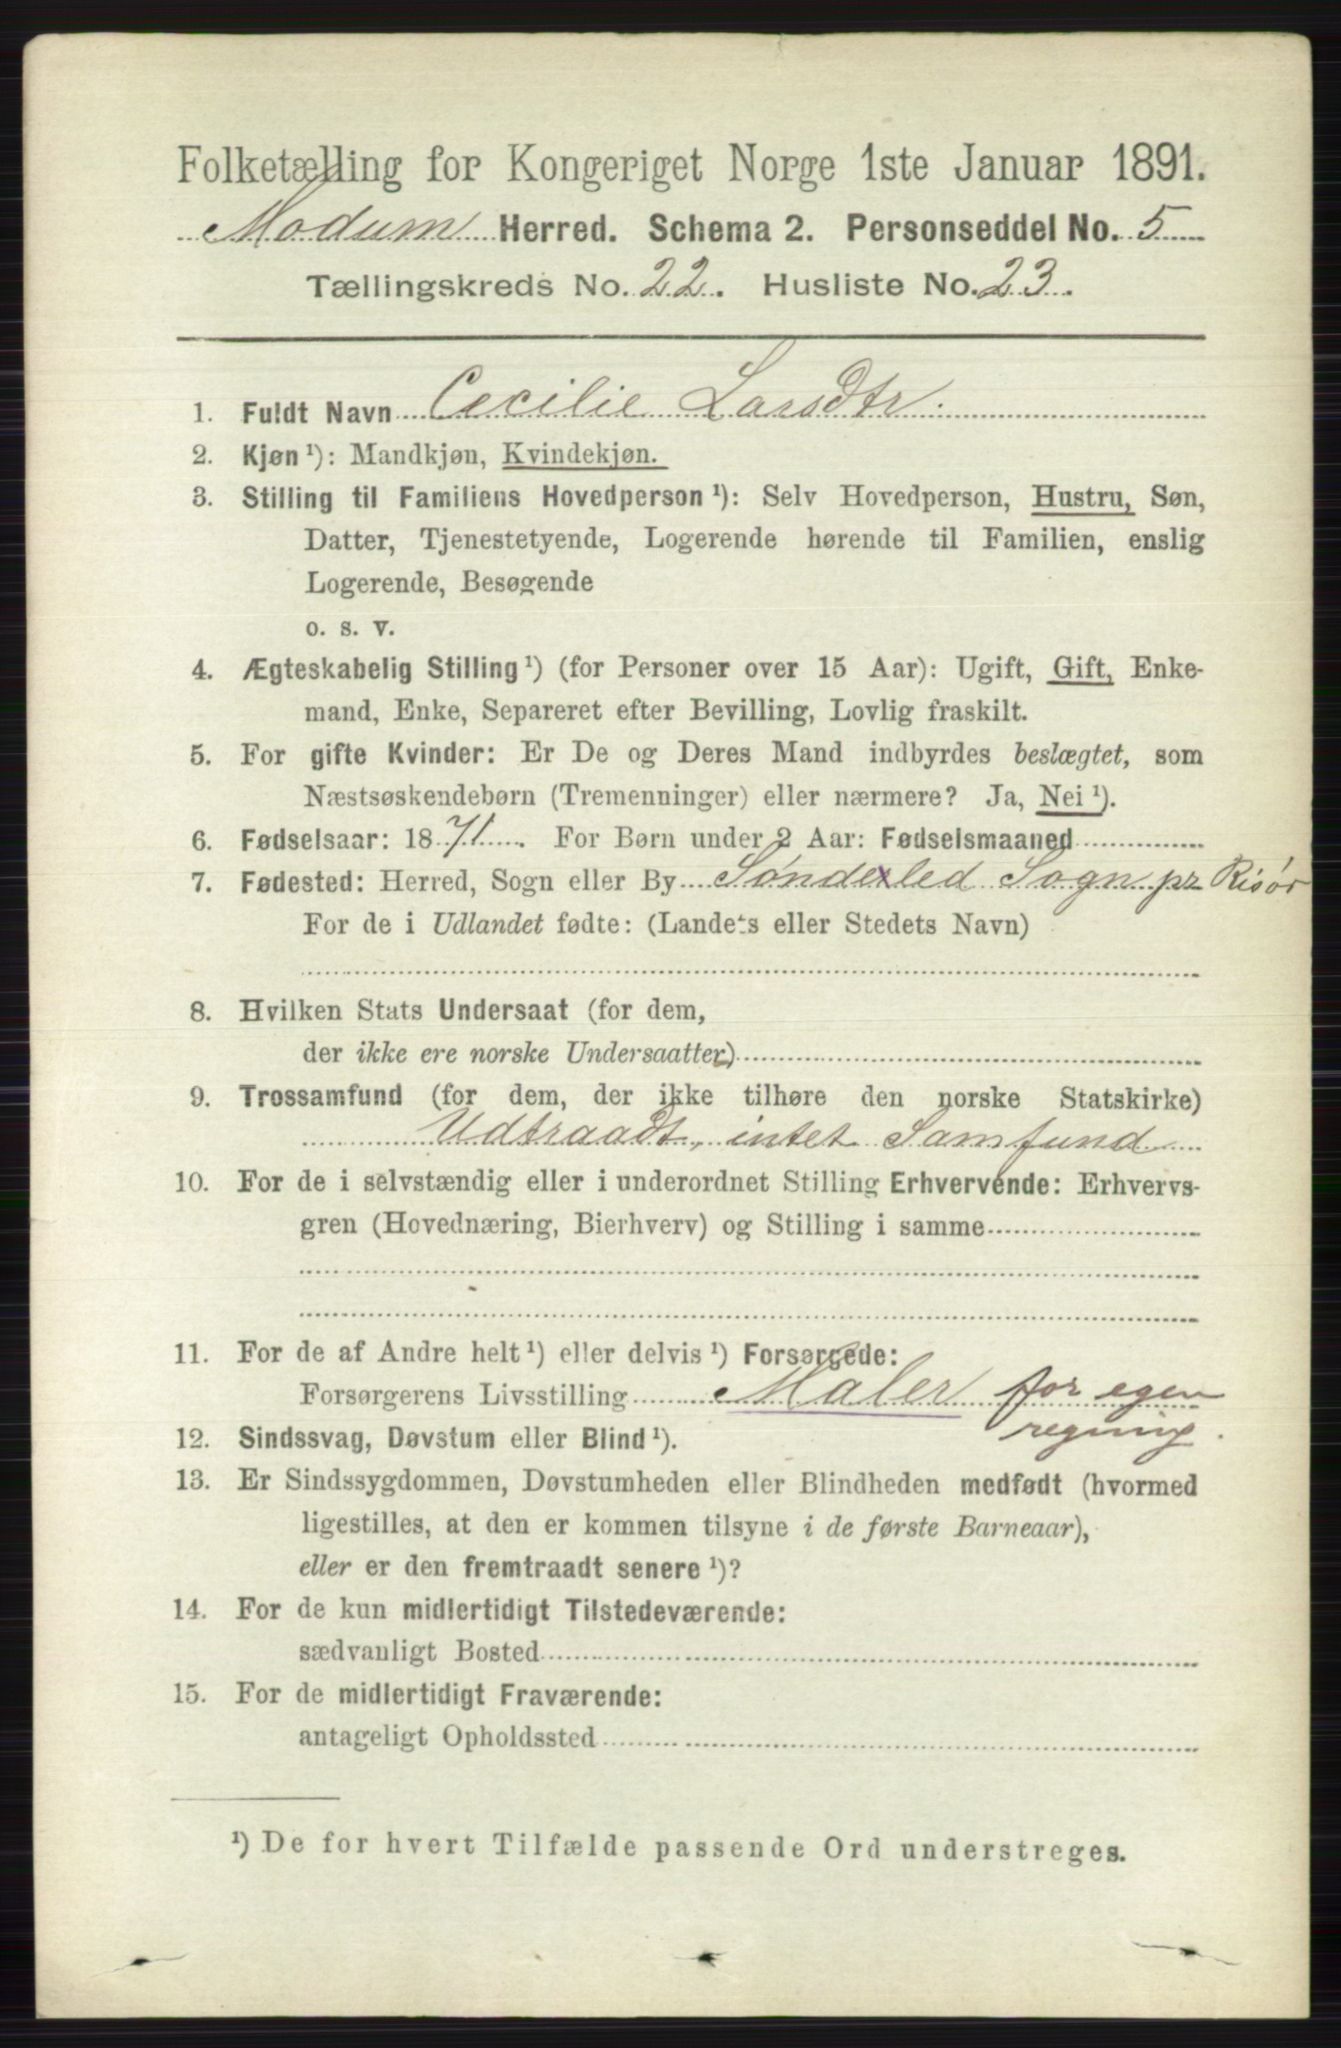 Folketælling for Kongeriget Norge 1ste Januar 1891.
Modum Herred. Schema 2. Personseddel No. 5
Tællingskreds No. 22. Husliste No. 23.
1. Fuldt Navn Cecilie Larsdtr.
2. Kjøn ¹): Mandkjøn, Kvindekjøn.
3. Stilling til Familiens Hovedperson ¹): Selv Hovedperson, Hustru, Søn,
Datter, Tjenestetyende, Logerende hørende til Familien, enslig
Logerende, Besøgende
o. s. v.
4. Ægteskabelig Stilling ¹) (for Personer over 15 Aar): Ugift, Gift, Enke-
mand, Enke, Separeret efter Bevilling, Lovlig fraskilt.
5. For gifte Kvinder: Er De og Deres Mand indbyrdes beslægtet, som
Næstsøskendebørn (Tremenninger) eller nærmere? Ja, Nei ¹).
6. Fødselsaar: 1871. For Børn under 2 Aar: Fødselsmaaned
7. Fødested: Herred, Sogn eller By Sønderled Sogn pr Risør
For de i Udlandet fødte: (Landets eller Stedets Navn)
8. Hvilken Stats Undersaat (for dem,
der ikke ere norske Undersaatter)
9. Trossamfund (for dem, der ikke tilhøre den norske Statskirke)
Udtraadt, intet Samfund
10. For de i selvstændig eller i underordnet Stilling Erhvervende: Erhvervs-
gren (Hovednæring, Bierhverv) og Stilling i samme
11. For de af Andre helt ¹) eller delvis ¹) Forsørgede:
Forsørgerens Livsstilling Maler for egen
regning.
12. Sindssvag, Døvstum eller Blind ¹).
13. Er Sindssygdommen, Døvstumheden eller Blindheden medfødt (hvormed
ligestilles, at den er kommen tilsyne i de første Barneaar),
eller er den fremtraadt senere ¹)?
14. For de kun midlertidigt Tilstedeværende:
sædvanligt Bosted
15. For de midlertidigt Fraværende:
antageligt Opholdssted
¹) De for hvert Tilfælde passende Ord understreges.